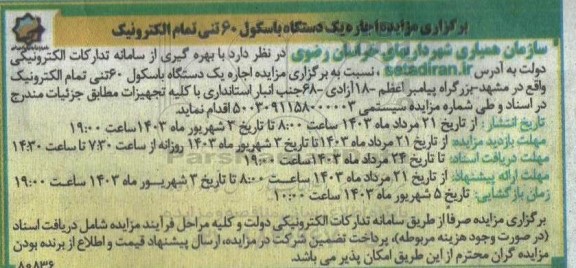 برگزاری مزایده اجاره یک دستگاه باسکول ۶۰ تنی تمام الکترونیک
سازمان همیاری شهرداریهای خراسان رضوی در نظر دارد با بهره گیری از سامانه تدارکات الکترونیکی
دولت به آدرس setadiran.ir ، نسبت به برگزاری مزایده اجاره یک دستگاه باسکول ۶۰تنی تمام الکترونیک
واقع در مشهد-بزرگراه پیامبر اعظم -۱۸آزادی -۶۸جنب انبار استانداری با کلیه تجهیزات مطابق جزئیات مندرج
در اسناد و طی شماره مزایده سیستمی ۵۰۰۳۰۹۱۱۵۸۰۰۰۰۰۳ اقدام نماید.
تاریخ انتشار: از تاریخ ۲۱ مرداد ماه ۱۴۰۳ ساعت ۸:۰۰ تا تاریخ ۳ شهریور ماه ۱۴۰۳ ساعت ۱۹:۰۰
مهلت بازدید مزایده: از تاریخ ۲۱ مرداد ماه ۱۴۰۳تا تاریخ ۳ شهریور ماه ۱۴۰۳ روزانه از ساعت ۷:۳۰ تا ساعت ۱۴:۳۰
مهلت دریافت اسناد: تا تاریخ ۲۴ مرداد ماه ۱۴۰۳ساعت ۱۹:۰۰
مهلت ارائه پیشنهاد: از تاریخ ۲۱ مرداد ماه ۱۴۰۳ ساعت ۸:۰۰ تا تاریخ ۳ شهریور ماه ۱۴۰۳ ساعت ۱۹:۰۰
زمان بازگشایی: تاریخ ۵ شهریور ماه ۱۴۰۳ ساعت ۱۰:۰۰
برگزاری مزایده صرفا از طریق سامانه تدارکات الکترونیکی دولت و کلیه مراحل فرآیند مزایده شامل دریافت اسناد
(در صورت وجود هزینه مربوطه)، پرداخت تضمین شرکت در مزایده، ارسال پیشنهاد قیمت و اطلاع از برنده بودن
مزایده گران محترم از این طریق امکان پذیر می باشد.
۸۰۸۳۶